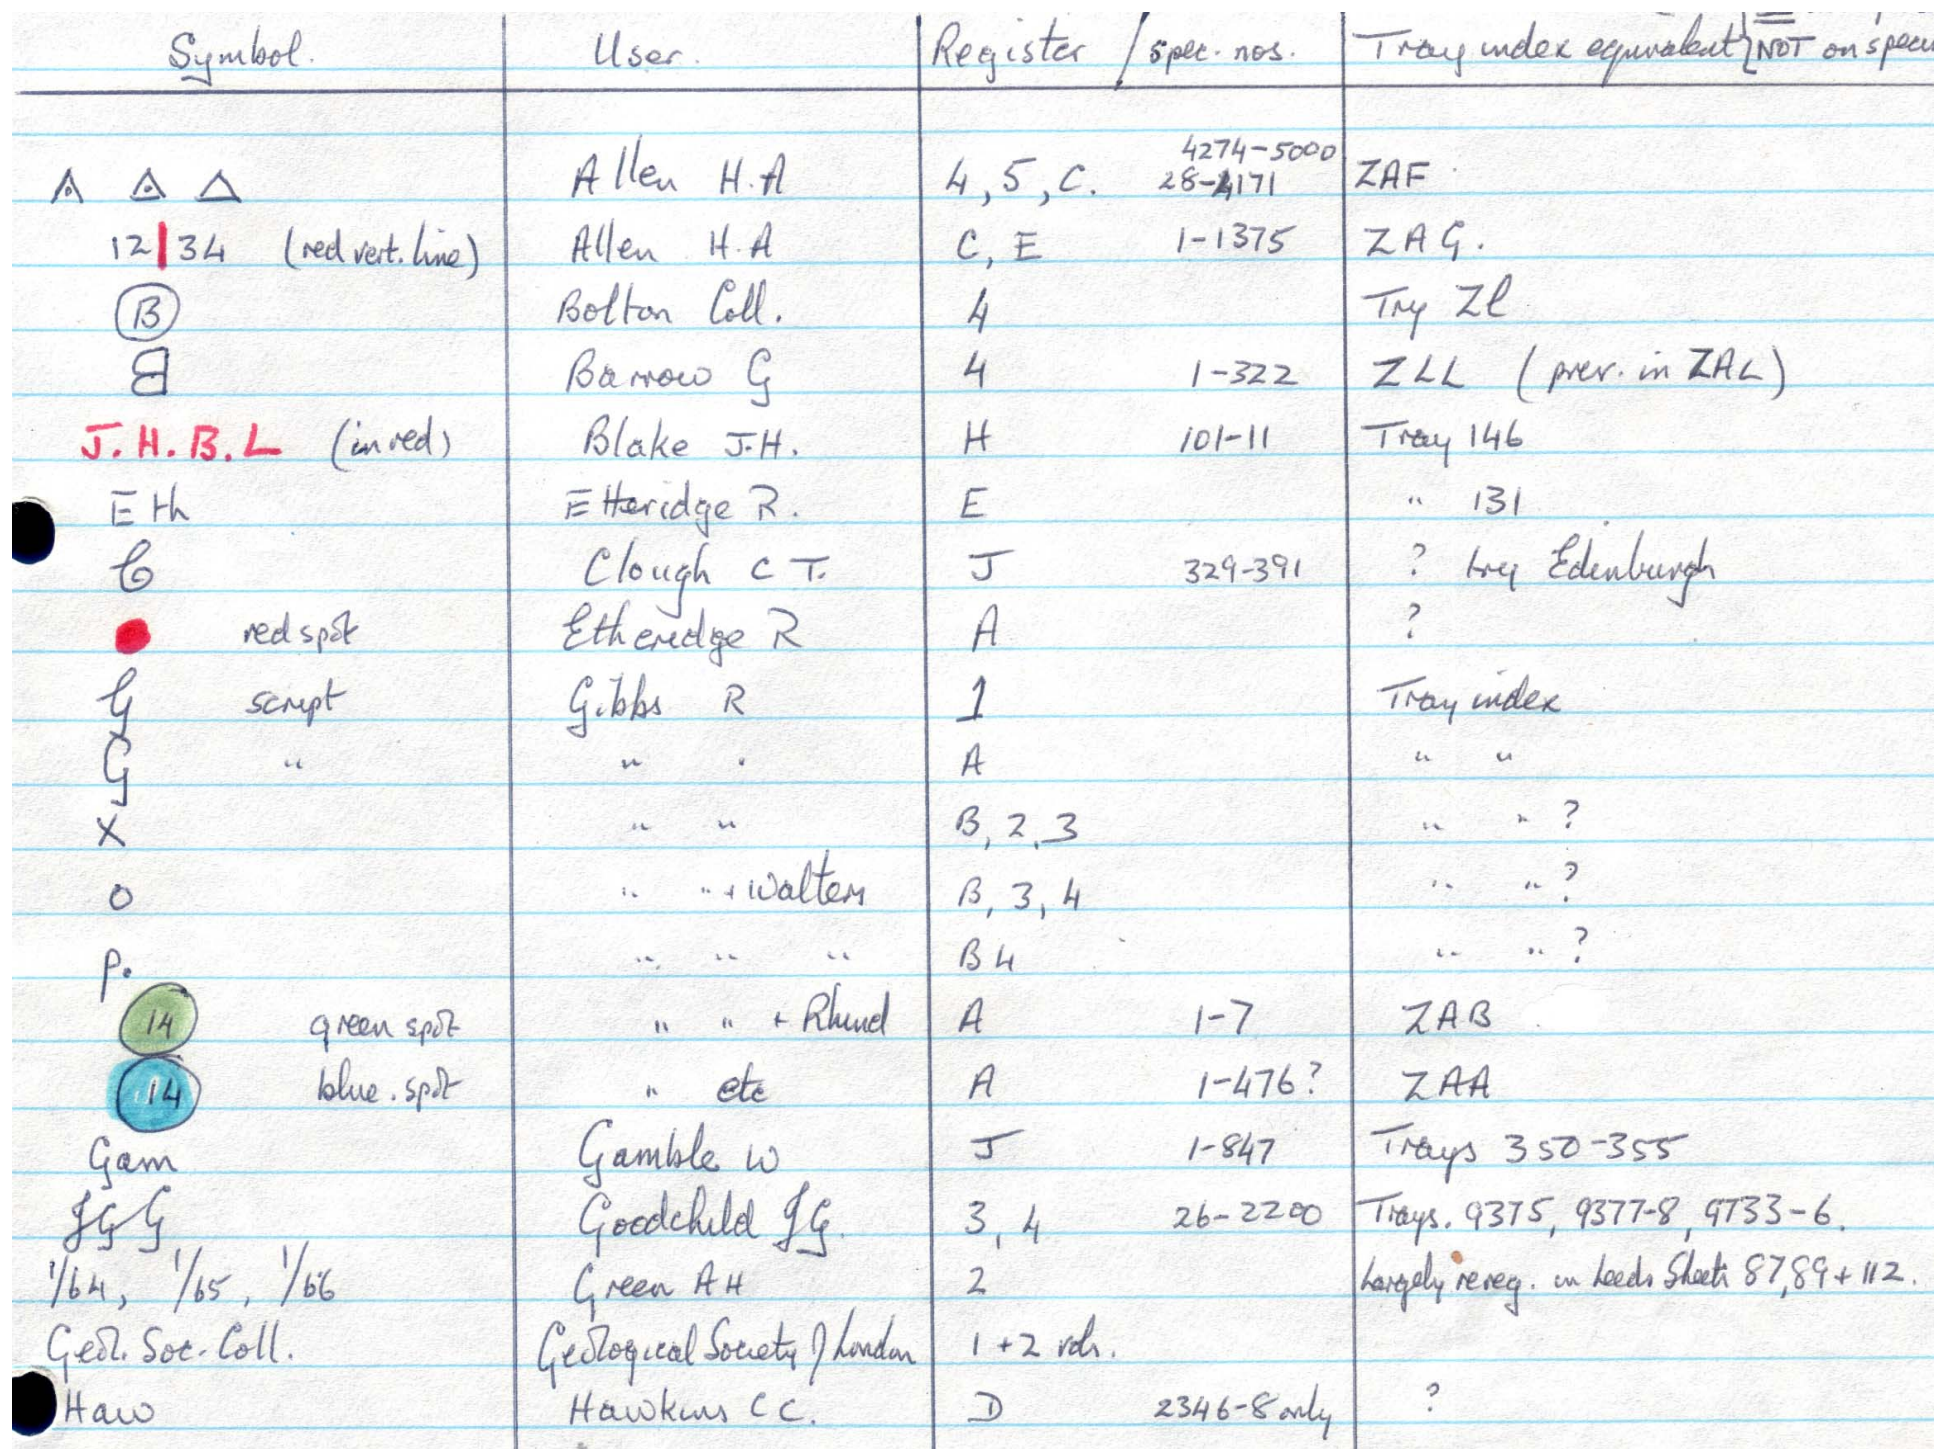 Symbol. User. Register / spec. nos. Tray index equivalent} NOT on speci
4274-5000
△ △ △ Allen H.A 4, 5, C. 28-4171 ZAF
12|34 (red vert. line) Allen H.A C, E 1-1375 ZAG.
B Bolton Coll. 4 Try Zl
B Barrow G 4 1-322 ZLL (prev. in ZAL)
J.H.B.L (in red) Blake J.H. H 101-11 Tray 146
Eth Etheridge R. E " 131
C Clough C T. J 329-391 ? try Edenburgh
red spot Etheridge R A ?
G script Gibbs R 1 Tray index
G " " " A " "
X " " B, 2, 3 " " ?
O " " + Walters B, 3, 4 " " ?
p. " " " B 4 " " ?
14 green spot " " + Rhind A 1-7 ZAB
14 blue. spot " etc A 1-476? ZAA
Gam Gamble W J 1-847 Trays 350-355
JGG Goodchild JG. 3, 4 26-2200 Trays. 9375, 9377-8, 9733-6.
1/64, 1/65, 1/66 Green AH 2 Largely rereg. in Leeds Sheets 87,89+112.
Geol. Soc. Coll. Geological Society of London 1+2 vols.
Haw Hawkins C C. D 2346-8 only ?